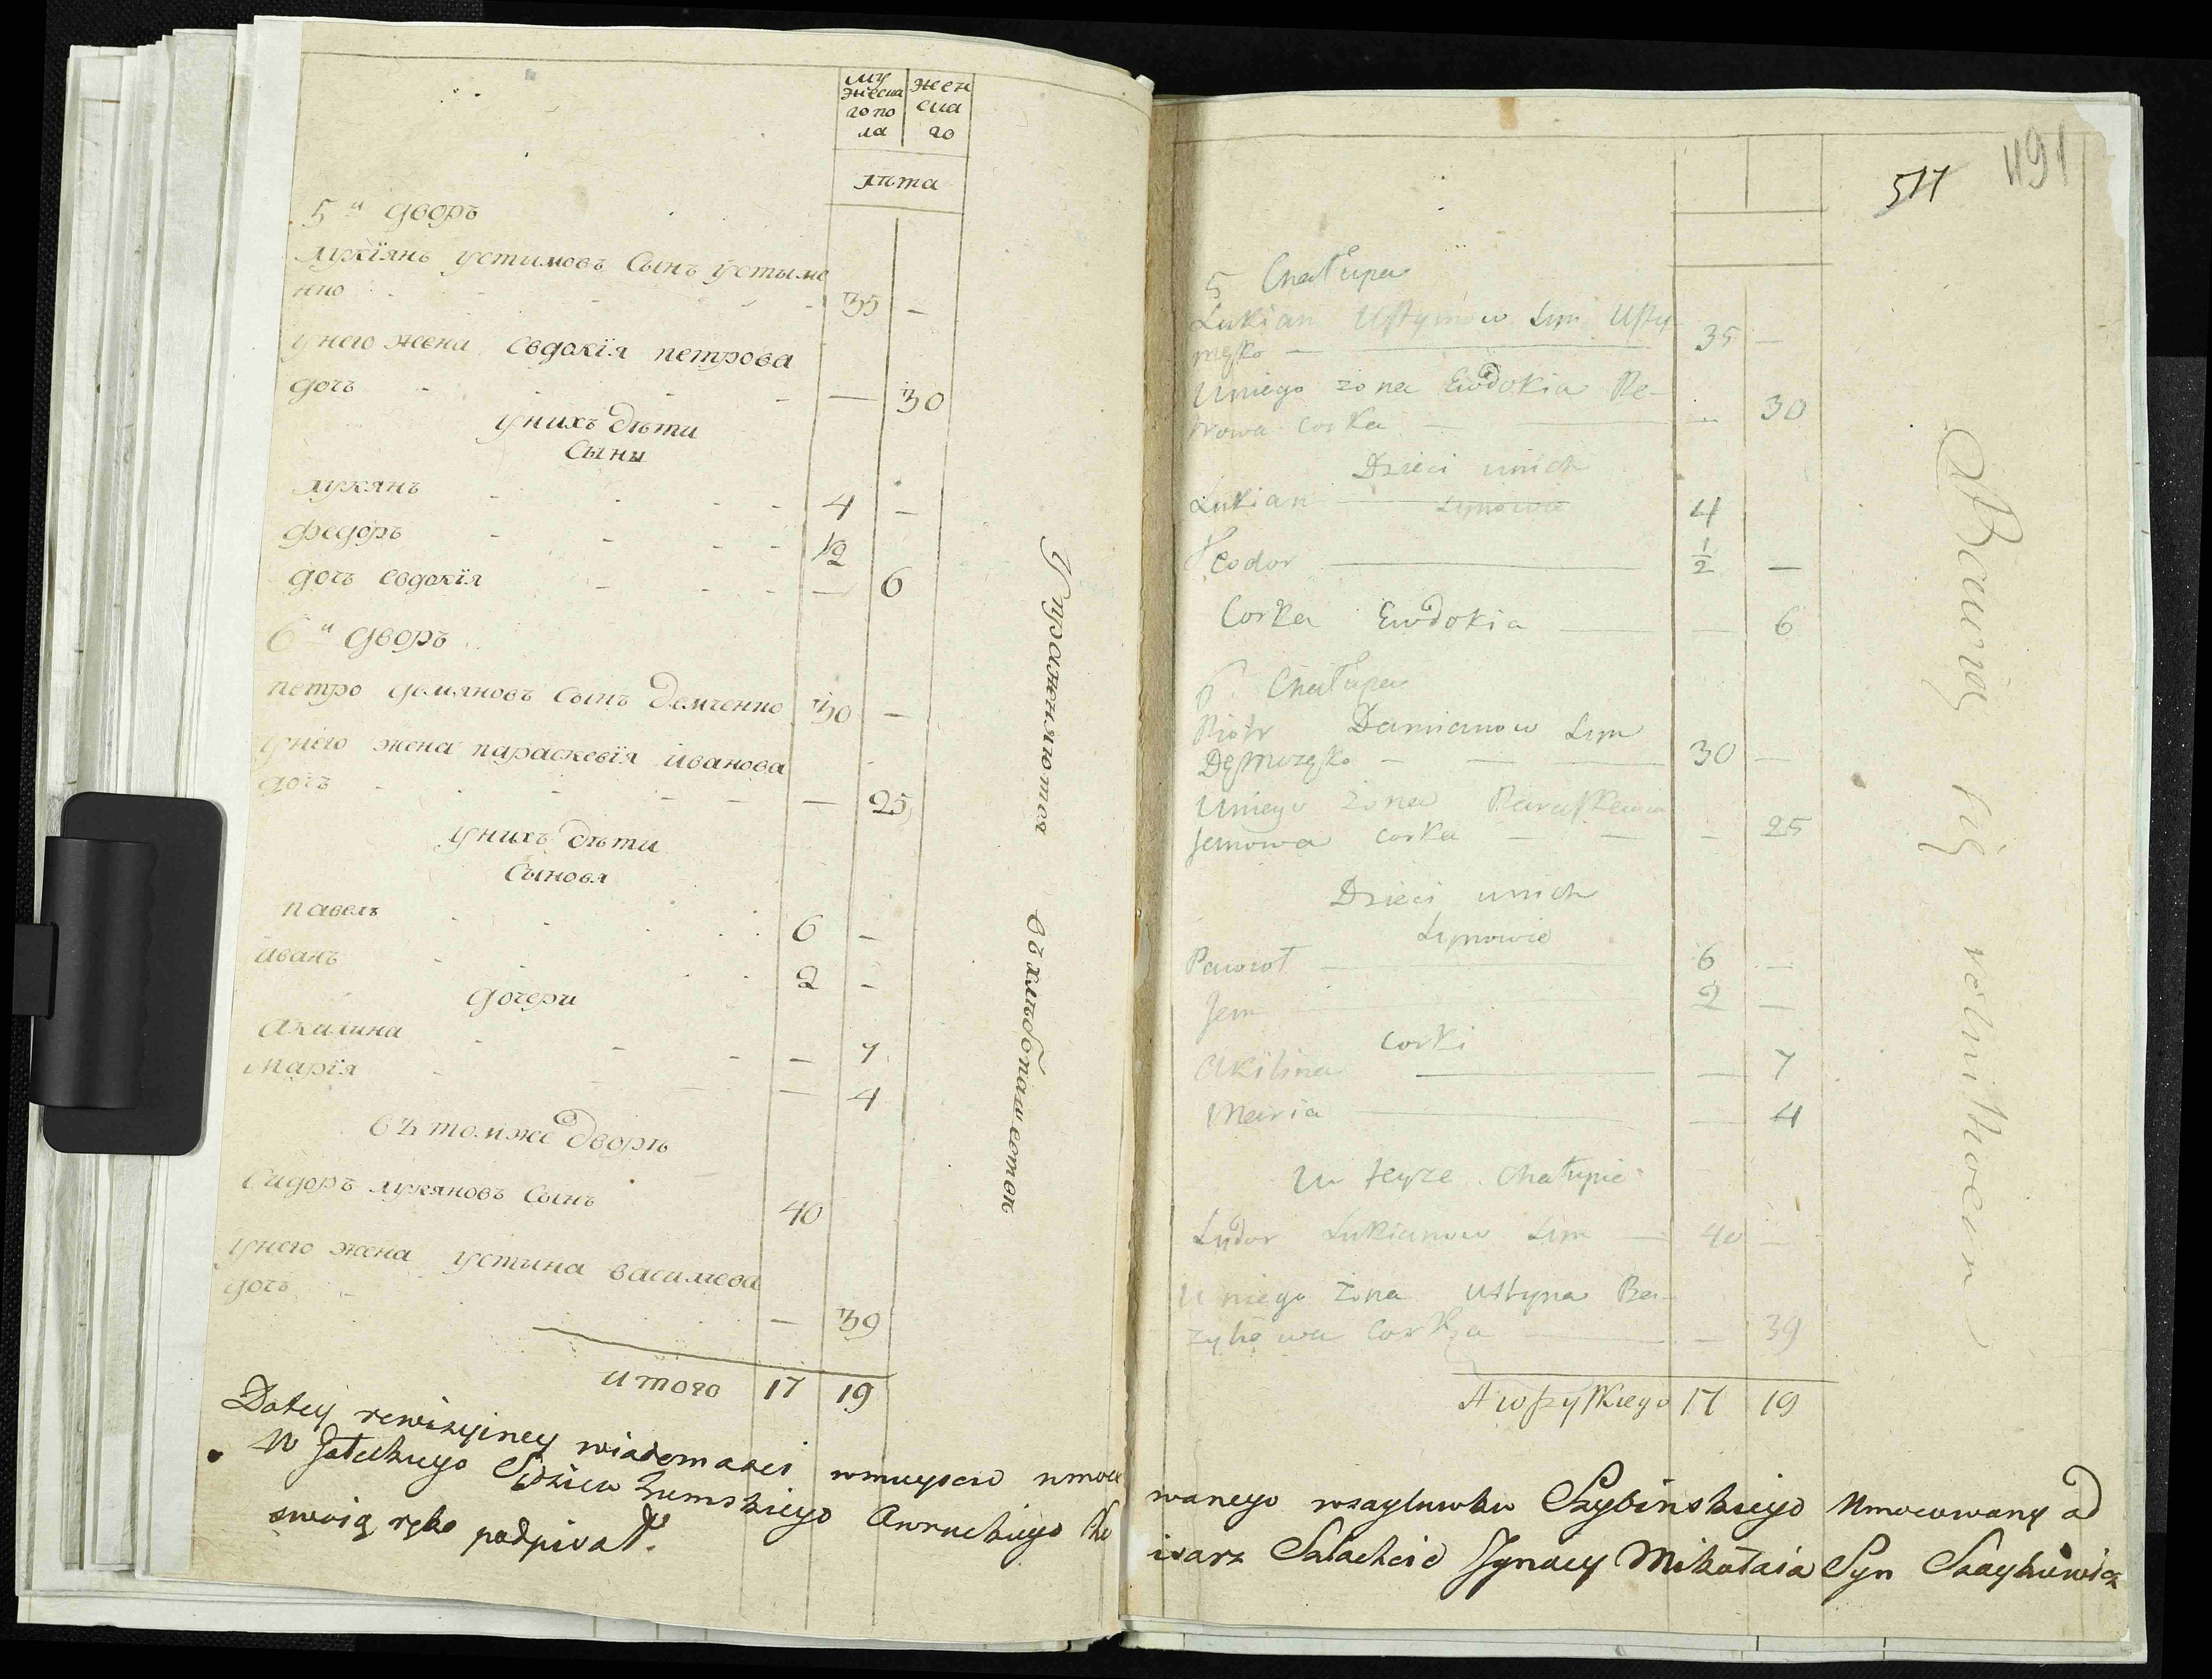 му
жеска
го по
ла
жен
ска
го
лѣта
5й дворъ
лукїянъ устимовъ сынъ устыме
нко - 35 -
у него жена евдокїя петрова
дочь - — 30
у нихъ дѣти
сыны
лукянъ - 4 -
федоръ - 1/2
дочь евдокїя - — 6
6й дворъ
петро демяновъ сынъ демченко 30 -
у него жена параскевїя иванова
дочь - — 25
у нихъ дѣти
сыновя
павелъ 6 -
иванъ 2 -
дочери
акилина — 7
марїя — 4
въ томже дворѣ
сидоръ лукяновъ сынъ 40
у него жена устина василева
дочь — 39
итого 17 19
упражняются въ хлѣбопашествѣ
511
491
5 Chałupa
Łukian Ustymow Syn Usty-
męko — 35 —
U niego żona Ewdokia Pe-
trowa corka — 30
Dzieci u nich
Łukian — Synowie 4
Teodor — 1/2 —
Corka Ewdokia — — 6
6 Chałupa
Piotr Damianow Syn
— 30 —
U niego żona Paraskewia
Janowa corka — — 25
Dzieci u nich
Synowie
Paweł — 6 —
Jan — 2 —
corki
Akilina — — 7
Maria — — 4
W teyze Chałupie
Sydor Łukianow Syn — 40 —
U niego żona Ustyna Ba-
zylowa Corka — — 39
A wszystkiego 17 19
Bawią się rolnictwem
Do tey rewizyiney wiadomości w mieyscu umoco wanego Szybinskiego Umocowany od
W Sędziego Ziemskiego Owruckiego Szlachcic Ignacy Mikołaia Syn
swoią ręką podpisał.